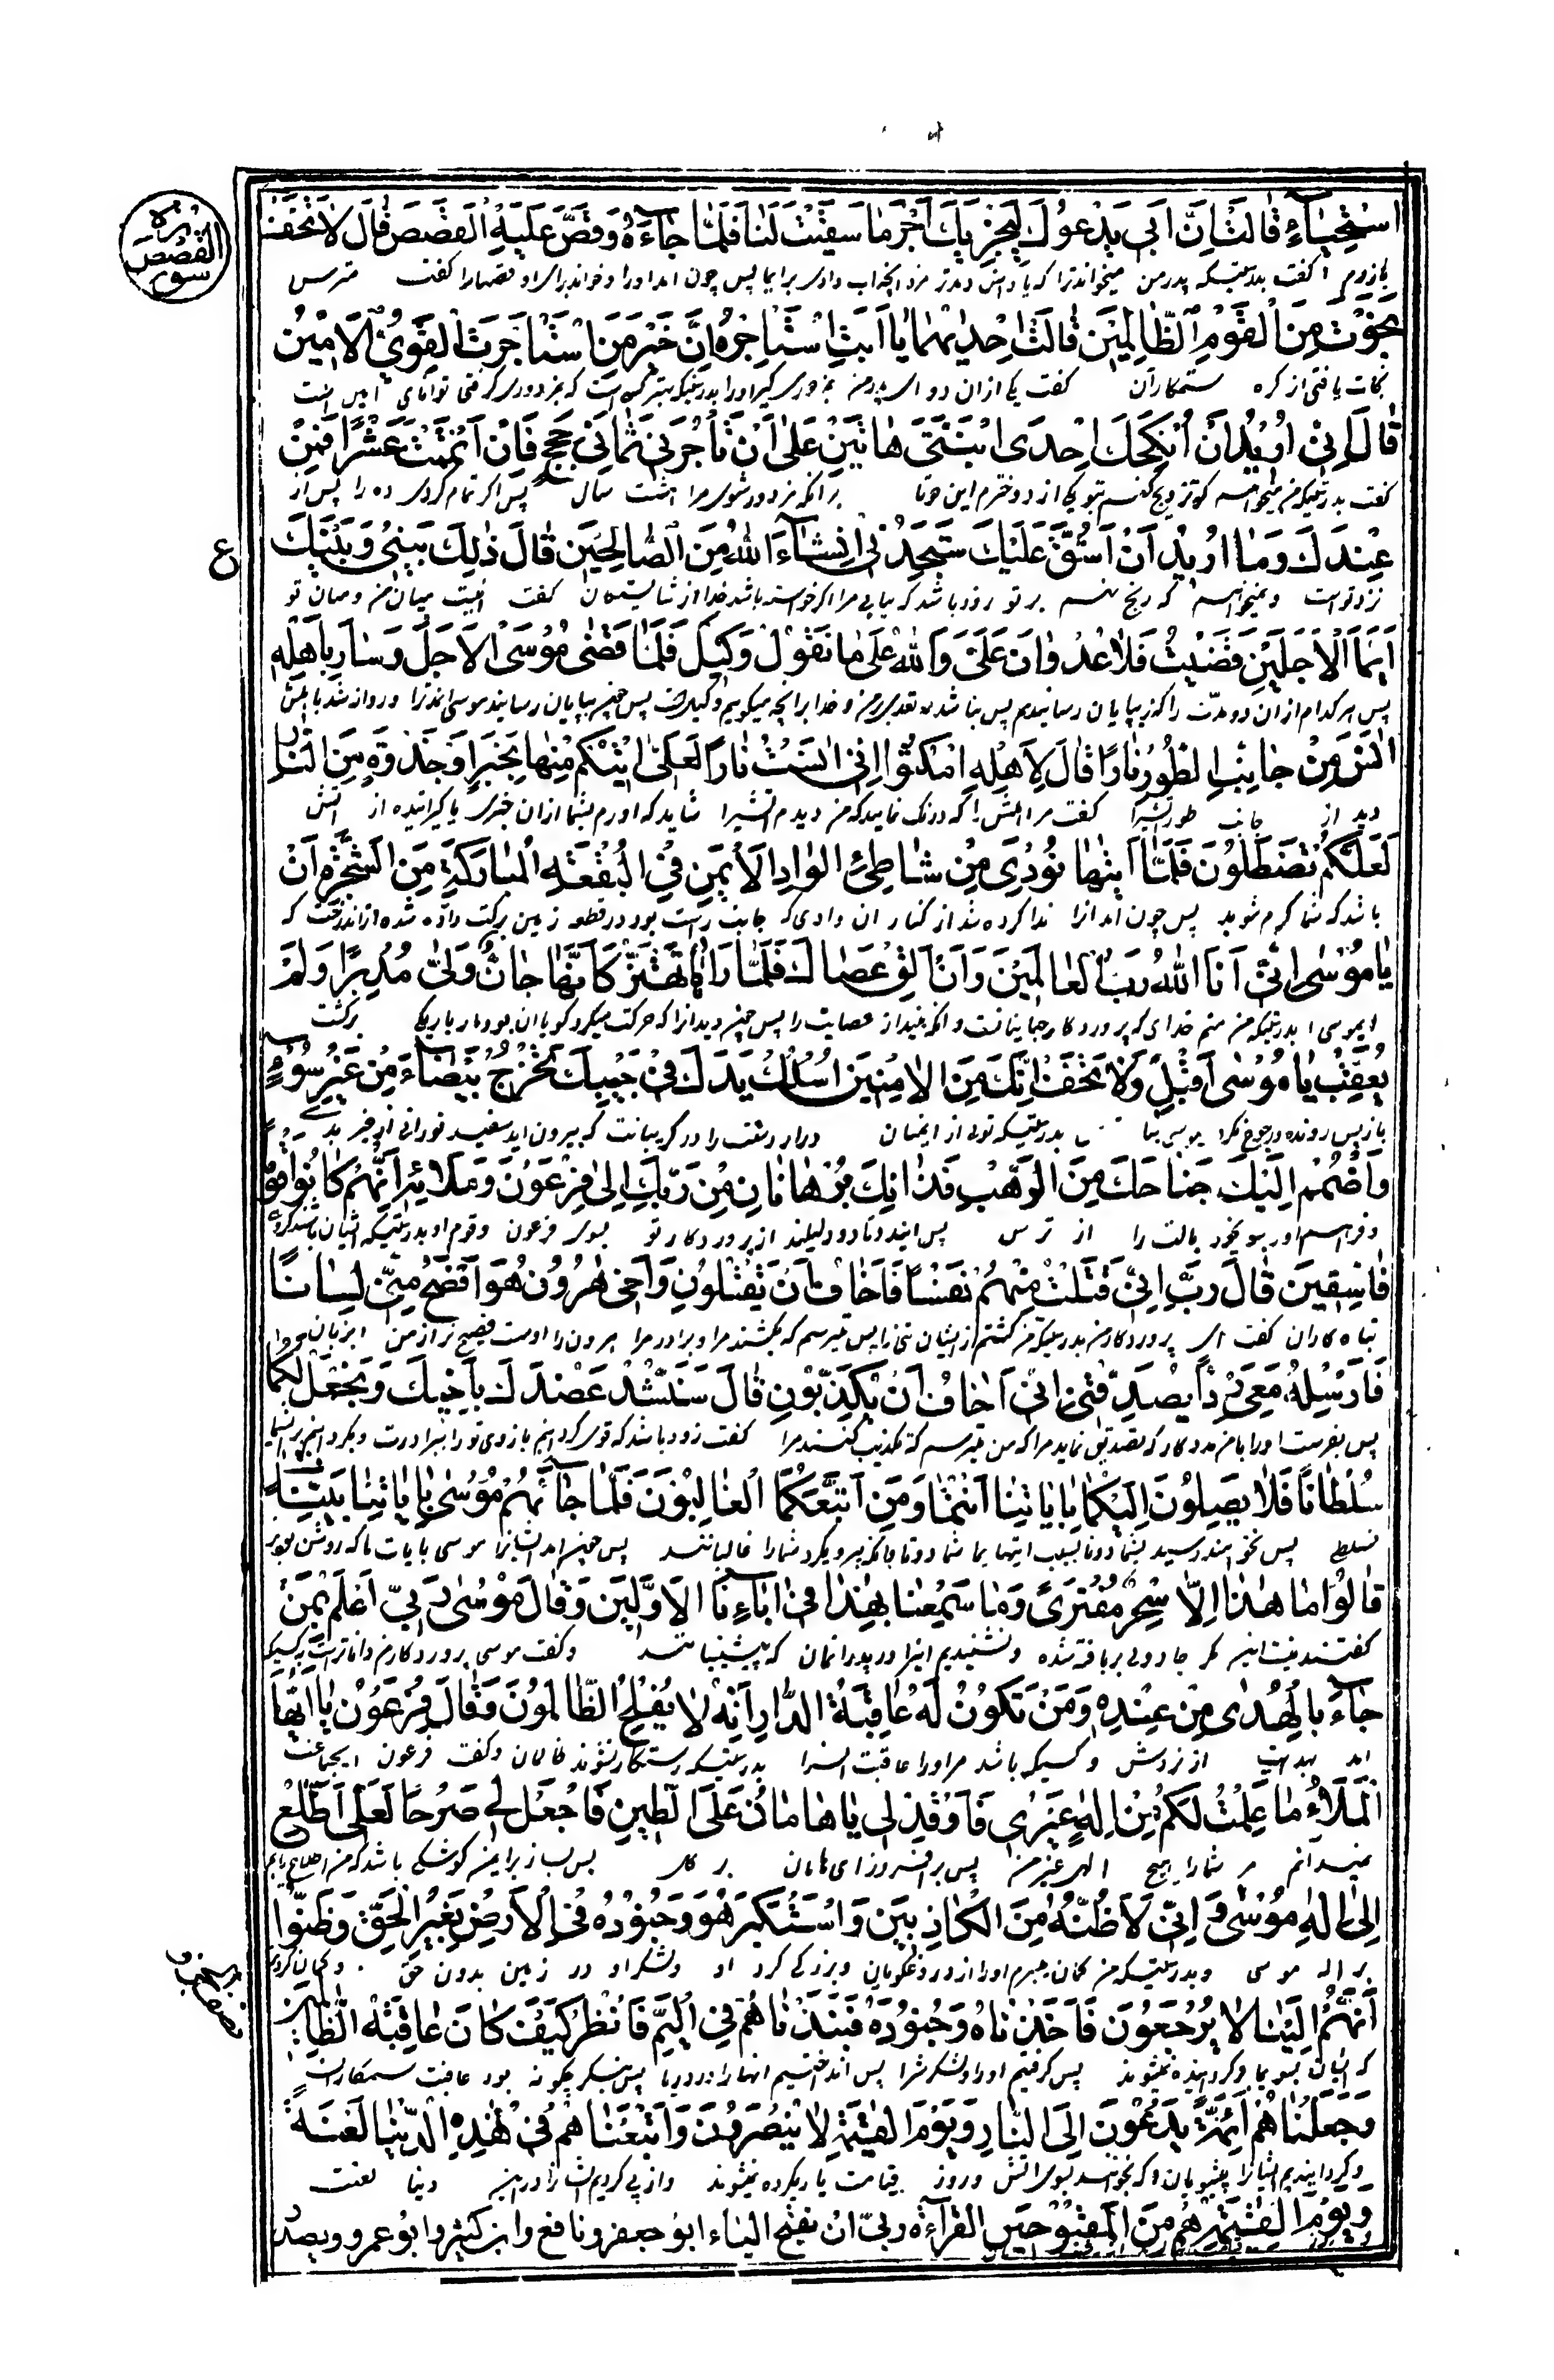 سورة القصص
اسْتِحْيَاءٍ قَالَتْ إِنَّ أَبِي يَدْعُوكَ لِيَجْزِيَكَ أَجْرَ مَا سَقَيْتَ لَنَا فَلَمَّا جَاءَهُ وَقَصَّ عَلَيْهِ الْقَصَصَ قَالَ لَا تَخَفْ
گفت بدرستیکه پدر من میخواند ترا که پاداش دهد ترا مزد آنچه آب دادی برای ما پس چون آمد او را و خواند برای او قصهها را گفت مترس
نَجَوْتَ مِنَ الْقَوْمِ الظَّالِمِينَ قَالَتْ إِحْدَاهُمَا يَا أَبَتِ اسْتَأْجِرْهُ إِنَّ خَيْرَ مَنِ اسْتَأْجَرْتَ الْقَوِيُّ الْأَمِينُ
نجات یافتی از کره ستمکاران گفت یکی از آن دو ای پدر من بمزدوری گیر او را بدرستیکه بهتر کسی است که بمزدوری گرفتی توانای امین است
قَالَ إِنِّي أُرِيدُ أَنْ أُنْكِحَكَ إِحْدَى ابْنَتَيَّ هَاتَيْنِ عَلَى أَنْ تَأْجُرَنِي ثَمَانِيَ حِجَجٍ فَإِنْ أَتْمَمْتَ عَشْرًا فَمِنْ
گفت بدرستیکه من میخواهم که تزویج کنم بتو یکی از دو دخترم این دوتا برآنکه مزدور شوی مرا هشت سال پس اگر تمام کردی ده را پس از
عِنْدِكَ وَمَا أُرِيدُ أَنْ أَشُقَّ عَلَيْكَ سَتَجِدُنِي إِنْشَاءَ اللَّهُ مِنَ الصَّالِحِينَ قَالَ ذَلِكَ بَيْنِي وَبَيْنَكَ
ع
نزد تو است و نمیخواهم که رنج نهم بر تو زود باشد که بیابی مرا اگر خواسته باشد خدا از شایستگان گفت اینست میان من و میان تو
أَيَّمَا الْأَجَلَيْنِ قَضَيْتُ فَلَا عُدْوَانَ عَلَيَّ وَاللَّهُ عَلَى مَا نَقُولُ وَكِيلٌ فَلَمَّا قَضَى مُوسَى الْأَجَلَ وَسَارَ بِأَهْلِهِ
پس هر کدام از آن دو مدت را که بپایان رسانیدم پس نباشد تعدی بر من و خدا بر آنچه میگوییم وکیل است پس چون بپایان رسانید موسی مدت را و روانه شد باهلش
آنَسَ مِنْ جَانِبِ الطُّورِ نَارًا قَالَ لِأَهْلِهِ امْكُثُوا إِنِّي آنَسْتُ نَارًا لَعَلِّي آتِيكُمْ مِنْهَا بِخَبَرٍ أَوْ جَذْوَةٍ مِنَ النَّارِ
دید از جانب طور آتشیرا گفت مر اهلش را که درنگ نمایید که من دیدم آتشیرا شاید که آورم بشما از آن خبری یا گیراننده از آتش
لَعَلَّكُمْ تَصْطَلُونَ فَلَمَّا أَتَاهَا نُودِيَ مِنْ شَاطِئِ الْوَادِ الْأَيْمَنِ فِي الْبُقْعَةِ الْمُبَارَكَةِ مِنَ الشَّجَرَةِ أَنْ
باشد که شما گرم شوید پس چون آمد آنرا ندا کرده شد از کنار آن وادی که جانب راست بود در قطعه زمین برکت داده شده از آن درخت که
يَا مُوسَى إِنِّي أَنَا اللَّهُ رَبُّ الْعَالَمِينَ وَأَنْ أَلْقِ عَصَاكَ فَلَمَّا رَآهَا تَهْتَزُّ كَأَنَّهَا جَانٌّ وَلَّى مُدْبِرًا وَلَمْ
ایموسی بدرستیکه من منم خدای که پروردگار جهانیانست و آنکه بینداز عصایت را پس چون دید آنرا که حرکت میکرد گویا آن بود مار باریک برگشت
يُعَقِّبْ يَا مُوسَى أَقْبِلْ وَلَا تَخَفْ إِنَّكَ مِنَ الْآمِنِينَ اسْلُكْ يَدَكَ فِي جَيْبِكَ تَخْرُجْ بَيْضَاءَ مِنْ غَيْرِ سُوءٍ
باز پس رونده و رجوع نکرد بدرستیکه توئی از ایمنان درآر دستت را در گریبانت که بیرون آید سفید نورانی از غیر بدی
وَاضْمُمْ إِلَيْكَ جَنَاحَكَ مِنَ الرَّهْبِ فَذَانِكَ بُرْهَانَانِ مِنْ رَبِّكَ إِلَى فِرْعَوْنَ وَمَلَئِهِ إِنَّهُمْ كَانُوا قَوْمًا
و فراهم آور بسوی خود بالت را از ترس پس ایندوتا دو دلیلند از پروردگار تو بسوی فرعون و قوم او بدرستیکه ایشان باشند گروهی
فَاسِقِينَ قَالَ رَبِّ إِنِّي قَتَلْتُ مِنْهُمْ نَفْسًا فَأَخَافُ أَنْ يَقْتُلُونِ وَأَخِي هَارُونُ هُوَ أَفْصَحُ مِنِّي لِسَانًا
تباه کاران گفت ای پروردگار من بدرستیکه من کشتم از ایشان تنی را پس میترسم که بکشند مرا و برادر مرا هرون را اوست فصیح تر از من از زبان
فَأَرْسِلْهُ مَعِيَ رِدْءًا يُصَدِّقُنِي إِنِّي أَخَافُ أَنْ يُكَذِّبُونِ قَالَ سَنَشُدُّ عَضُدَكَ بِأَخِيكَ وَنَجْعَلُ لَكُمَا
پس بفرست او را با من مددکار که تصدیق نماید مرا که من میترسم که تکذیب کنند مرا گفت زود باشد که قوی گردانیم بازوی تو را ببرادرت و بگردانیم برای شما
سُلْطَانًا فَلَا يَصِلُونَ إِلَيْكُمَا بِآيَاتِنَا أَنْتُمَا وَمَنِ اتَّبَعَكُمَا الْغَالِبُونَ فَلَمَّا جَاءَهُمْ مُوسَى بِآيَاتِنَا بَيِّنَاتٍ
تسلط پس نخواهند رسید بشما دوتا بسبب آیتهای ما شما دوتا و آنکه پیروی کرد شما را غالبانند پس چون آمد ایشانرا موسی بآیات ما که روشن بود
قَالُوا مَا هَذَا إِلَّا سِحْرٌ مُفْتَرًى وَمَا سَمِعْنَا بِهَذَا فِي آبَائِنَا الْأَوَّلِينَ وَقَالَ مُوسَى رَبِّي أَعْلَمُ بِمَنْ
گفتند نیست این مگر جادوئی بربافته شده و نشنیدیم اینرا در پدرانمان که پیشینیانند و گفت موسی پروردگار من داناتر است بکسیکه
جَاءَ بِالْهُدَى مِنْ عِنْدِهِ وَمَنْ تَكُونُ لَهُ عَاقِبَةُ الدَّارِ إِنَّهُ لَا يُفْلِحُ الظَّالِمُونَ وَقَالَ فِرْعَوْنُ يَا أَيُّهَا
آمد بهدایت از نزدش و کسیکه باشد مر او را عاقبت آنسرا بدرستیکه رستگار نشوند ظالمان و گفت فرعون ایجماعت
الْمَلَأُ مَا عَلِمْتُ لَكُمْ مِنْ إِلَهٍ غَيْرِي فَأَوْقِدْ لِي يَا هَامَانُ عَلَى الطِّينِ فَاجْعَلْ لِي صَرْحًا لَعَلِّي أَطَّلِعُ
نمیدانم مر شما را هیچ الهی غیر من پس برافروز ای هامان بر گل پس بساز برای من کوشکی باشد که من اطلاع یابم
إِلَى إِلَهِ مُوسَى وَإِنِّي لَأَظُنُّهُ مِنَ الْكَاذِبِينَ وَاسْتَكْبَرَ هُوَ وَجُنُودُهُ فِي الْأَرْضِ بِغَيْرِ الْحَقِّ وَظَنُّوا
بر اله موسی و بدرستیکه من گمان میبرم او را از دروغگویان و بزرگی کرد او و لشکر او در زمین بدون حق و گمان کردند
أَنَّهُمْ إِلَيْنَا لَا يُرْجَعُونَ فَأَخَذْنَاهُ وَجُنُودَهُ فَنَبَذْنَاهُمْ فِي الْيَمِّ فَانْظُرْ كَيْفَ كَانَ عَاقِبَةُ الظَّالِمِينَ
که ایشان بسوی ما برگردانیده نمیشوند پس گرفتیم او را و لشکرش را پس انداختیم آنها را در دریا پس بنگر چگونه بود عاقبت ستمکاران
وَجَعَلْنَاهُمْ أَئِمَّةً يَدْعُونَ إِلَى النَّارِ وَيَوْمَ الْقِيَمَةِ لَا يُنْصَرُونَ وَأَتْبَعْنَاهُمْ فِي هَذِهِ الدُّنْيَا لَعْنَةً
و گردانیدیم ایشانرا پیشوایان که میخوانند بسوی آتش و روز قیامت یاری کرده نمیشوند و از پی کردیم ایشانرا در این دنیا لعنت
وَيَوْمَ الْقِيَمَةِ هُمْ مِنَ الْمَقْبُوحِينَ القراءة ربّي ان بفتح الياء ابو جعفر ونافع وابن كثير وابو عمرو ويصد